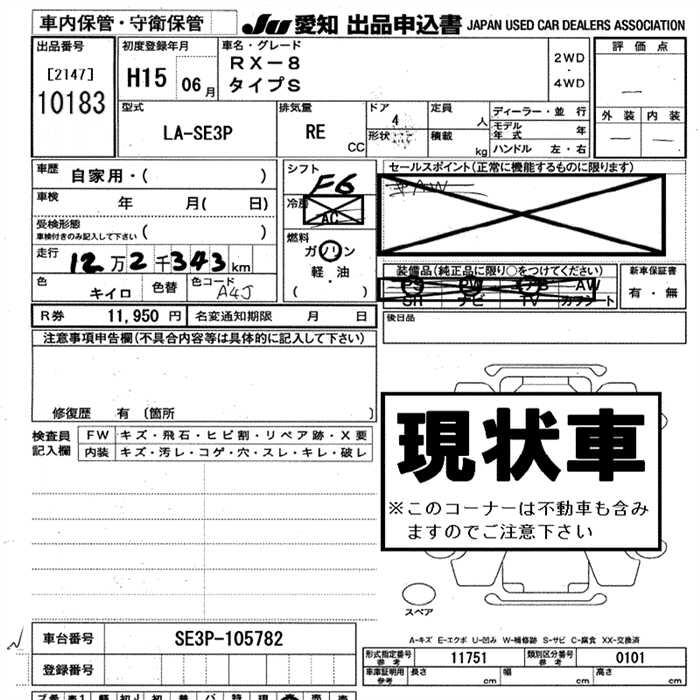 車内保管・守衛保管 JU 愛知 出品申込書 JAPAN USED CAR DEALERS ASSOCIATION
出品番号 初度登録年月 車名・グレード 評価点
[2147] H15 06月 RX-8 2WD ・ 4WD
10183 タイプS
型式 排気量 ドア 定員 ディーラー・並行 外装 内装
LA-SE3P RE CC 4 人 モデル年式 年
形状 積載 kg ハンドル 左・右
車歴 自家用・( ) シフト F6 セールスポイント(正常に機能するものに限ります)
車検 年 月( 日) 冷房 AC
受検形態 車検付きのみ記入して下さい ( )
燃料 ガソリン
軽・油
( ・ )
走行 12万2千343km 装備品(純正品に限り○をつけてください) 新車保証書
PS PW AB AW 有・無
SR ナビ TV カワシート
色 キイロ 色替 色コード A4J
R券 11,950円 名変通知期限 月 日 後日品
注意事項申告欄(不具合内容等は具体的に記入して下さい)
修復歴 有 〔箇所 〕
検査員記入欄 FW キズ・飛石・ヒビ割・リペア跡・X要
内装 キズ・汚レ・コゲ・穴・スレ・キレ・破レ
現状車
※このコーナーは不動車も含み
ますのでご注意下さい
スペア
A-キズ E-エクボ U-凹み W-補修跡 S-サビ C-腐食 XX-交換済
車台番号 SE3P-105782
型式指定番号 参考 11751 類別区分番号 参考 0101
登録番号
車庫証明用 参考 長さ cm 幅 cm 高さ cm